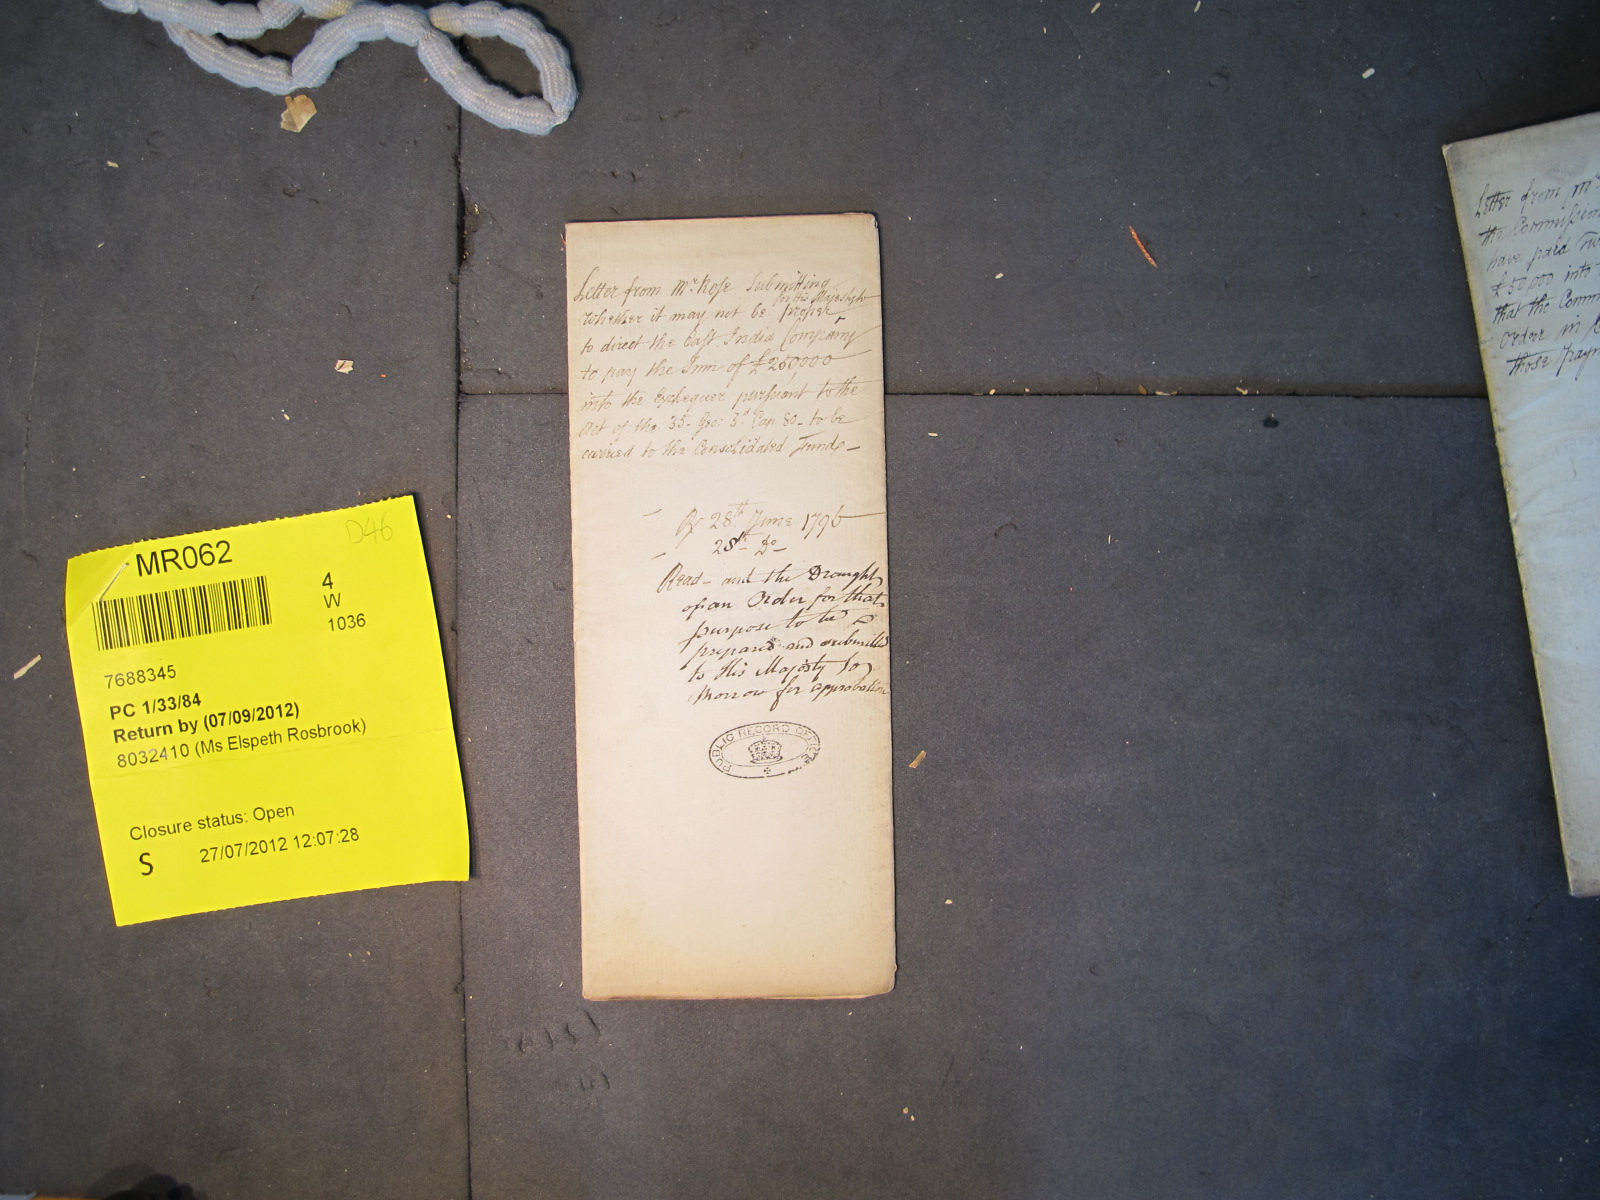 D46
MR062
4
W
1036
7688345
PC 1/33/84
Return by (07/09/2012)
8032410 (Ms Elspeth Rosbrook)
Closure status: Open
S 27/07/2012 12:07:28
Letter from Mr. Rose Submitting
for His Majesty to
whether it may not be proper
to direct the East India Company
to pay the Sum of £250000
into the Exchequer pursuant to the
Act of the 35. Geo: 3d. Cap. 80 - to be
carried to the Consolidated Funds -
28th. June 1796
28th Do -
Read - and the Draught
of an Order for that
purpose to be
prepared and submitted
to His Majesty to
morrow for approbation
PUBLIC RECORD OFFICE
Letter from Mr.
the Commission
have paid
£50,000 into
that the Comm
Order in
those paym